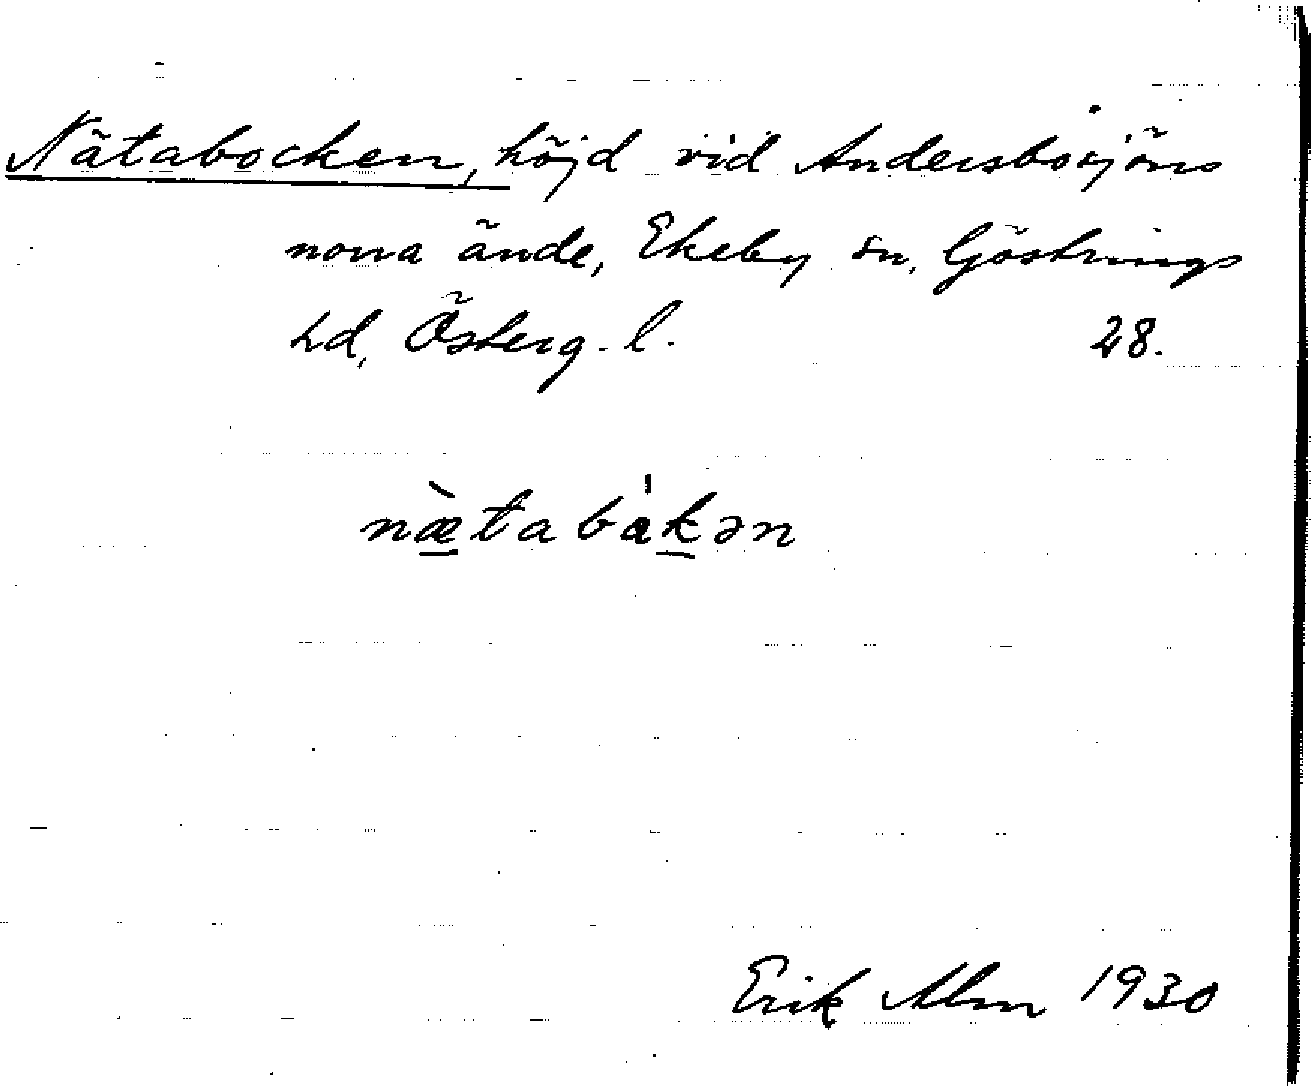 Nätabocken, höjd vid Andersbosjöns
norra ände, Ekeby sn, Göstrings
hd, Österg. l. 28.
nætabakən
Erik Alm 1930